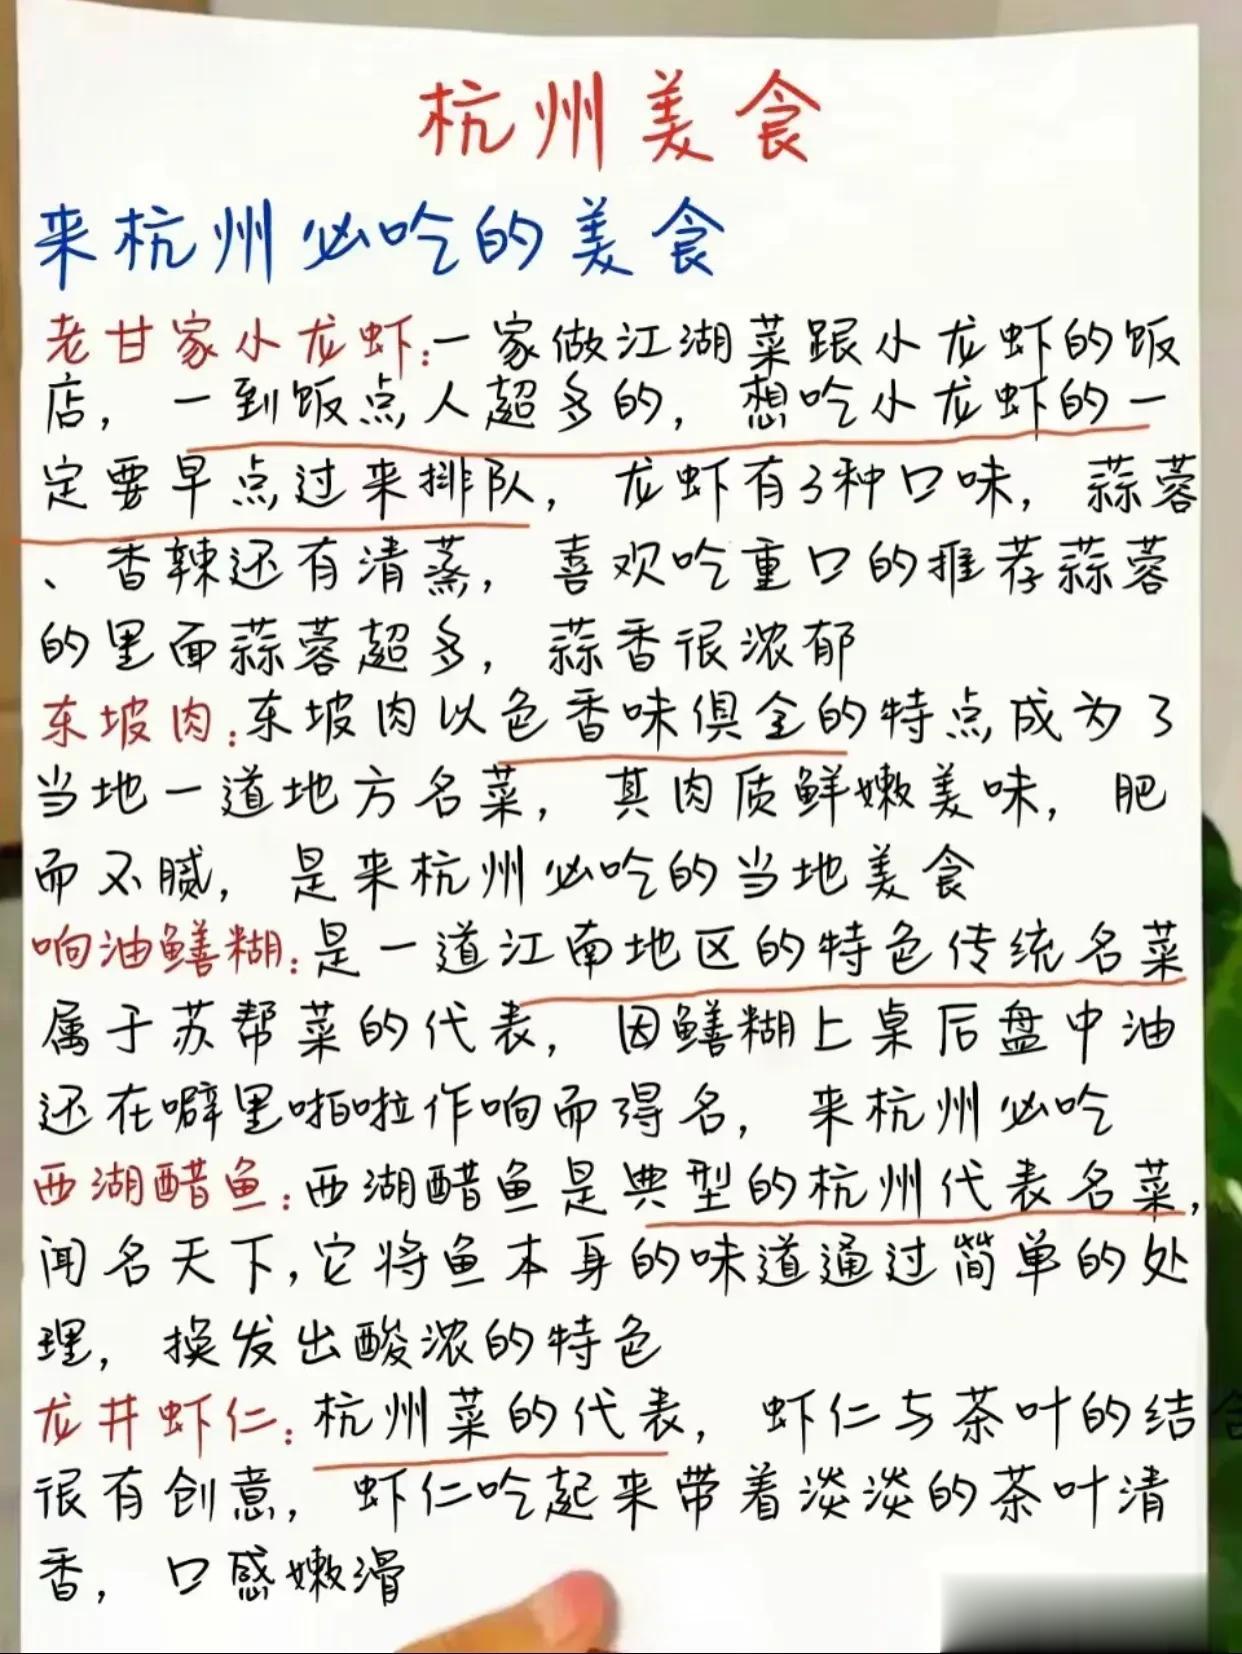 杭州美食
来杭州必吃的美食
老甘家小龙虾:一家做江湖菜跟小龙虾的饭
店，一到饭点人超多的，想吃小龙虾的一
定要早点过来排队，龙虾有3种口味，蒜蓉
、香辣还有清蒸，喜欢吃重口的推荐蒜蓉
的里面蒜蓉超多，蒜香很浓郁
东坡肉:东坡肉以色香味俱全的特点成为了
当地一道地方名菜，其肉质鲜嫩美味，肥
而不腻，是来杭州必吃的当地美食
响油鳝糊:是一道江南地区的特色传统名菜
属于苏帮菜的代表，因鳝糊上桌后盘中油
还在噼里啪啦作响而得名，来杭州必吃
西湖醋鱼:西湖醋鱼是典型的杭州代表名菜，
闻名天下，它将鱼本身的味道通过简单的处
理，换发出酸浓的特色
龙井虾仁:杭州菜的代表，虾仁与茶叶的结合
很有创意，虾仁吃起来带着淡淡的茶叶清
香，口感嫩滑